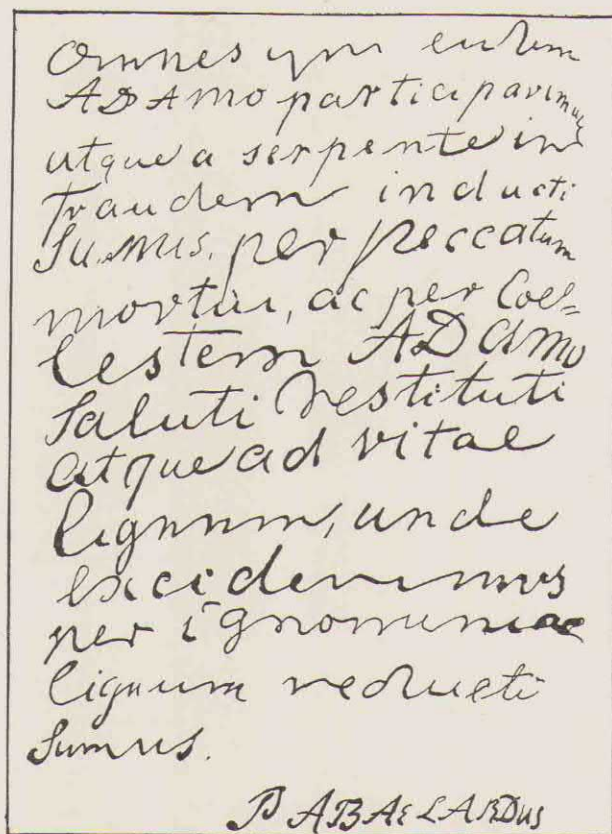 Omnes qui eidem
ADAMO participavimus
atque a serpente in
fraudem inducti
Sumus, per peccatum
mortui, ac per Coe=
lestem ADamo
Saluti restituti
atque ad vitae
lignum, unde
excideramus
per ignominiae
lignum reducti
Sumus.
P ABAELARDUS